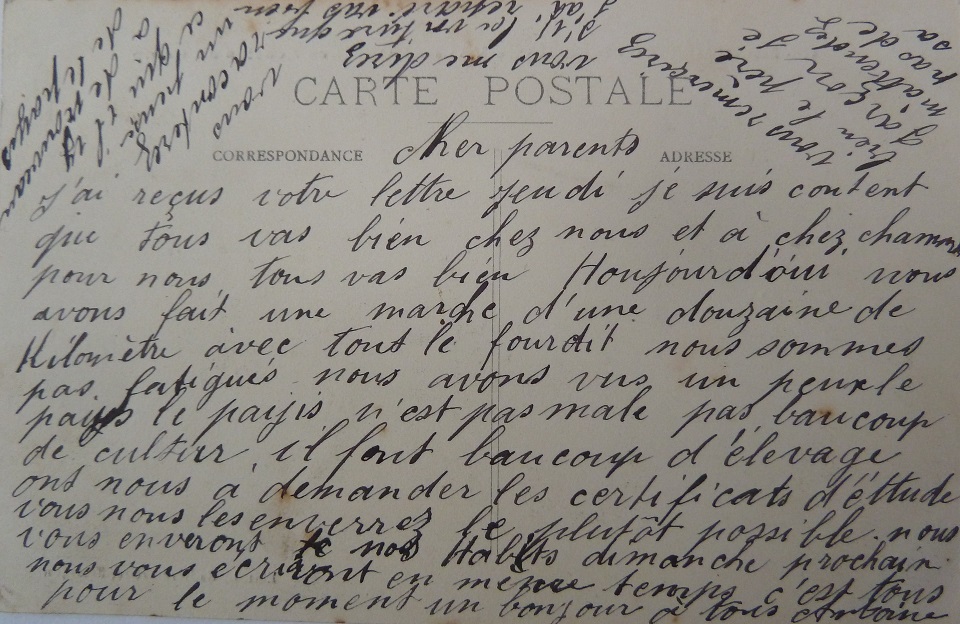 CARTE POSTALE
CORRESPONDANCE
ADRESSE
Cher parents
j'ai reçus votre lettre jeudi je suis content
que tous vas bien chez nous et à chez
pour nous tous vas bien Houjourd'oui nous
avons fait une marche d'une douzaine de
Kilomètre avec tout le fourdit nous sommes
pas fatigués nous avons vus un peux le
pays le payis n'est pas male pas baucoup
de cultur il font baucoup d'élevage
ont nous à demander les certificats d'éttude
vous nous les enverrez le plutôt possible. nous
vous enveront nos Habits dimanche prochain
nous vous écriront en même temps c'est tous
pour le moment un bonjour à tous Antoine
vous remercirez
bien le père
garçon je
m'attendez
pas de
sa
vous me direz
s'il la voiture que
j'ai réparé vas bien
vous
raconterez
un peux
ce qui il y
a de nouveau
de le pays